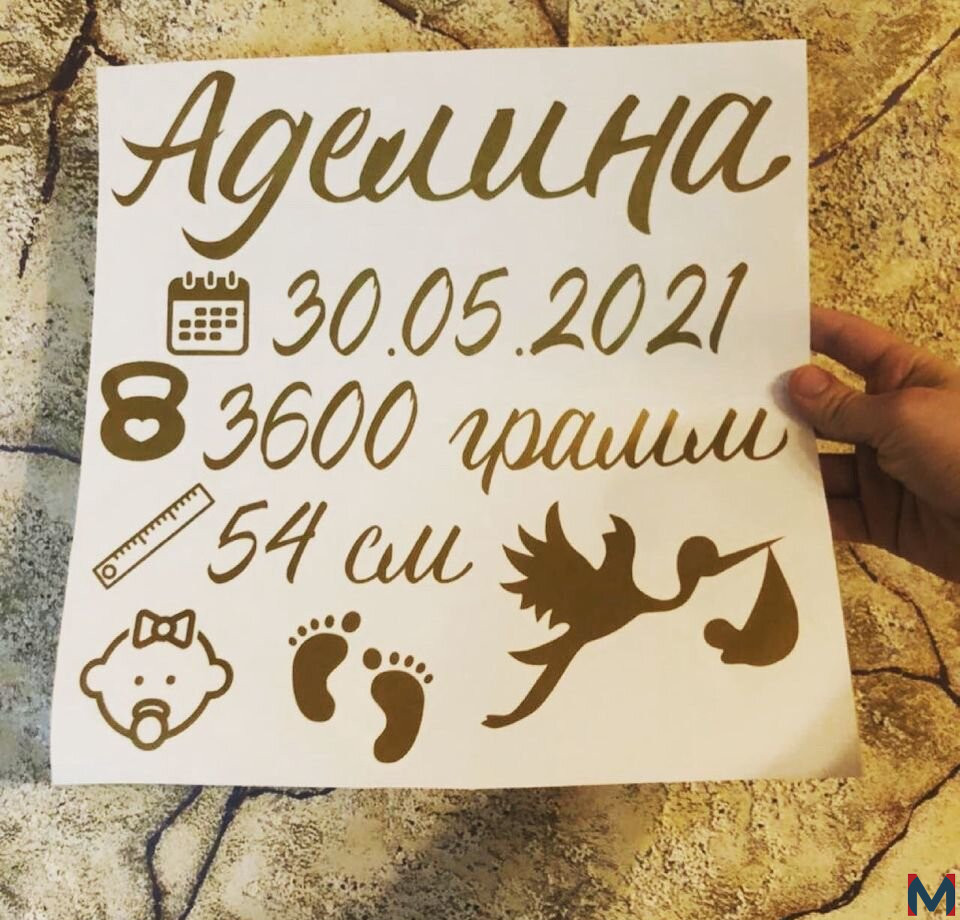 Аделина
30.05.2021
3600 грамм
54 см
M